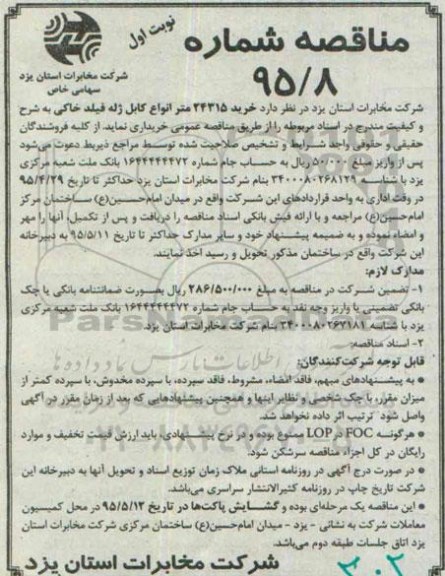 مناقصه شماره
۹۵/۸
نوبت اول
شرکت مخابرات استان یزد
سهامی خاص
شرکت مخابرات استان یزد در نظر دارد خرید ۲۴۳۱۵ متر انواع کابل ژله فیلد خاکی به شرح
و کیفیت مندرج در اسناد مربوطه را از طریق مناقصه عمومی خریداری نماید. از کلیه فروشندگان
حقیقی و حقوقی واجد شرایط و تشخیص صلاحیت شده توسط مراجع ذیربط دعوت می‌شود
پس از واریز مبلغ ۵۰۰/۰۰۰ ریال به حساب جام شماره ۱۶۴۴۴۴۴۴۷۲ بانک ملت شعبه مرکزی
یزد با شناسه ۳۴۰۰۰۸۰۲۶۸۱۲۹ بنام شرکت مخابرات استان یزد حداکثر تا تاریخ ۹۵/۴/۲۹
در وقت اداری به واحد قراردادهای این شرکت واقع در میدان امام‌حسین(ع) ساختمان مرکز
امام‌حسین(ع) مراجعه و با ارائه فیش بانکی اسناد مناقصه را دریافت و پس از تکمیل، آنها را مهر
و امضاء نموده و به ضمیمه پیشنهاد خود و سایر مدارک حداکثر تا تاریخ ۹۵/۵/۱۱ به دبیرخانه
این شرکت واقع در ساختمان مذکور تحویل و رسید اخذ نمایند.
مدارک لازم:
۱- تضمین شرکت در مناقصه به مبلغ ۲۸۶/۵۰۰/۰۰۰ ریال بصورت ضمانتنامه بانکی یا چک
بانکی تضمینی یا واریز وجه نقد به حساب جام شماره ۱۶۴۴۴۴۴۴۷۲ بانک ملت شعبه مرکزی
یزد با شناسه ۳۴۰۰۰۸۰۲۶۷۱۸۱ بنام شرکت مخابرات استان یزد.
۲- اسناد مناقصه:
قابل توجه شرکت‌کنندگان:
• به پیشنهادهای مبهم، فاقد امضاء، مشروط، فاقد سپرده، با سپرده مخدوش، با سپرده کمتر از
میزان مقرر، با چک شخصی و نظایر اینها و همچنین پیشنهادهایی که بعد از زمان مقرر در آگهی
واصل شود ترتیب اثر داده نخواهد شد.
• هرگونه FOC و LOP ممنوع بوده و در نرخ پیشنهادی، باید ارزش قیمت تخفیف و موارد
رایگان در کل اجزاء مناقصه سرشکن شود.
• در صورت درج آگهی در روزنامه استانی ملاک زمان توزیع اسناد و تحویل آنها به دبیرخانه این
شرکت تاریخ چاپ در روزنامه کثیرالانتشار سراسری می‌باشد.
• این مناقصه یک مرحله‌ای بوده و گشایش پاکت‌ها در تاریخ ۹۵/۵/۱۲ در محل کمیسیون
معاملات شرکت به نشانی - یزد - میدان امام‌حسین(ع) ساختمان مرکزی شرکت مخابرات استان
یزد اتاق جلسات طبقه دوم می‌باشد.
شرکت مخابرات استان یزد
۳۰۲